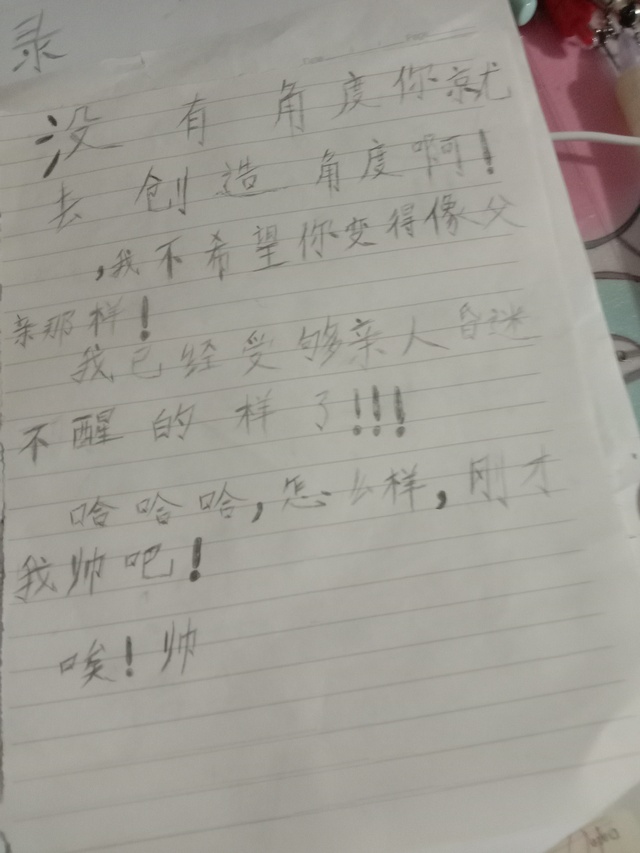 录
没有角度你就
去创造角度啊!
,我不希望你变得像父
亲那样!
我已经受够亲人昏迷
不醒的样了!!!
哈哈哈,怎么样,刚才
我帅吧!
唉!帅